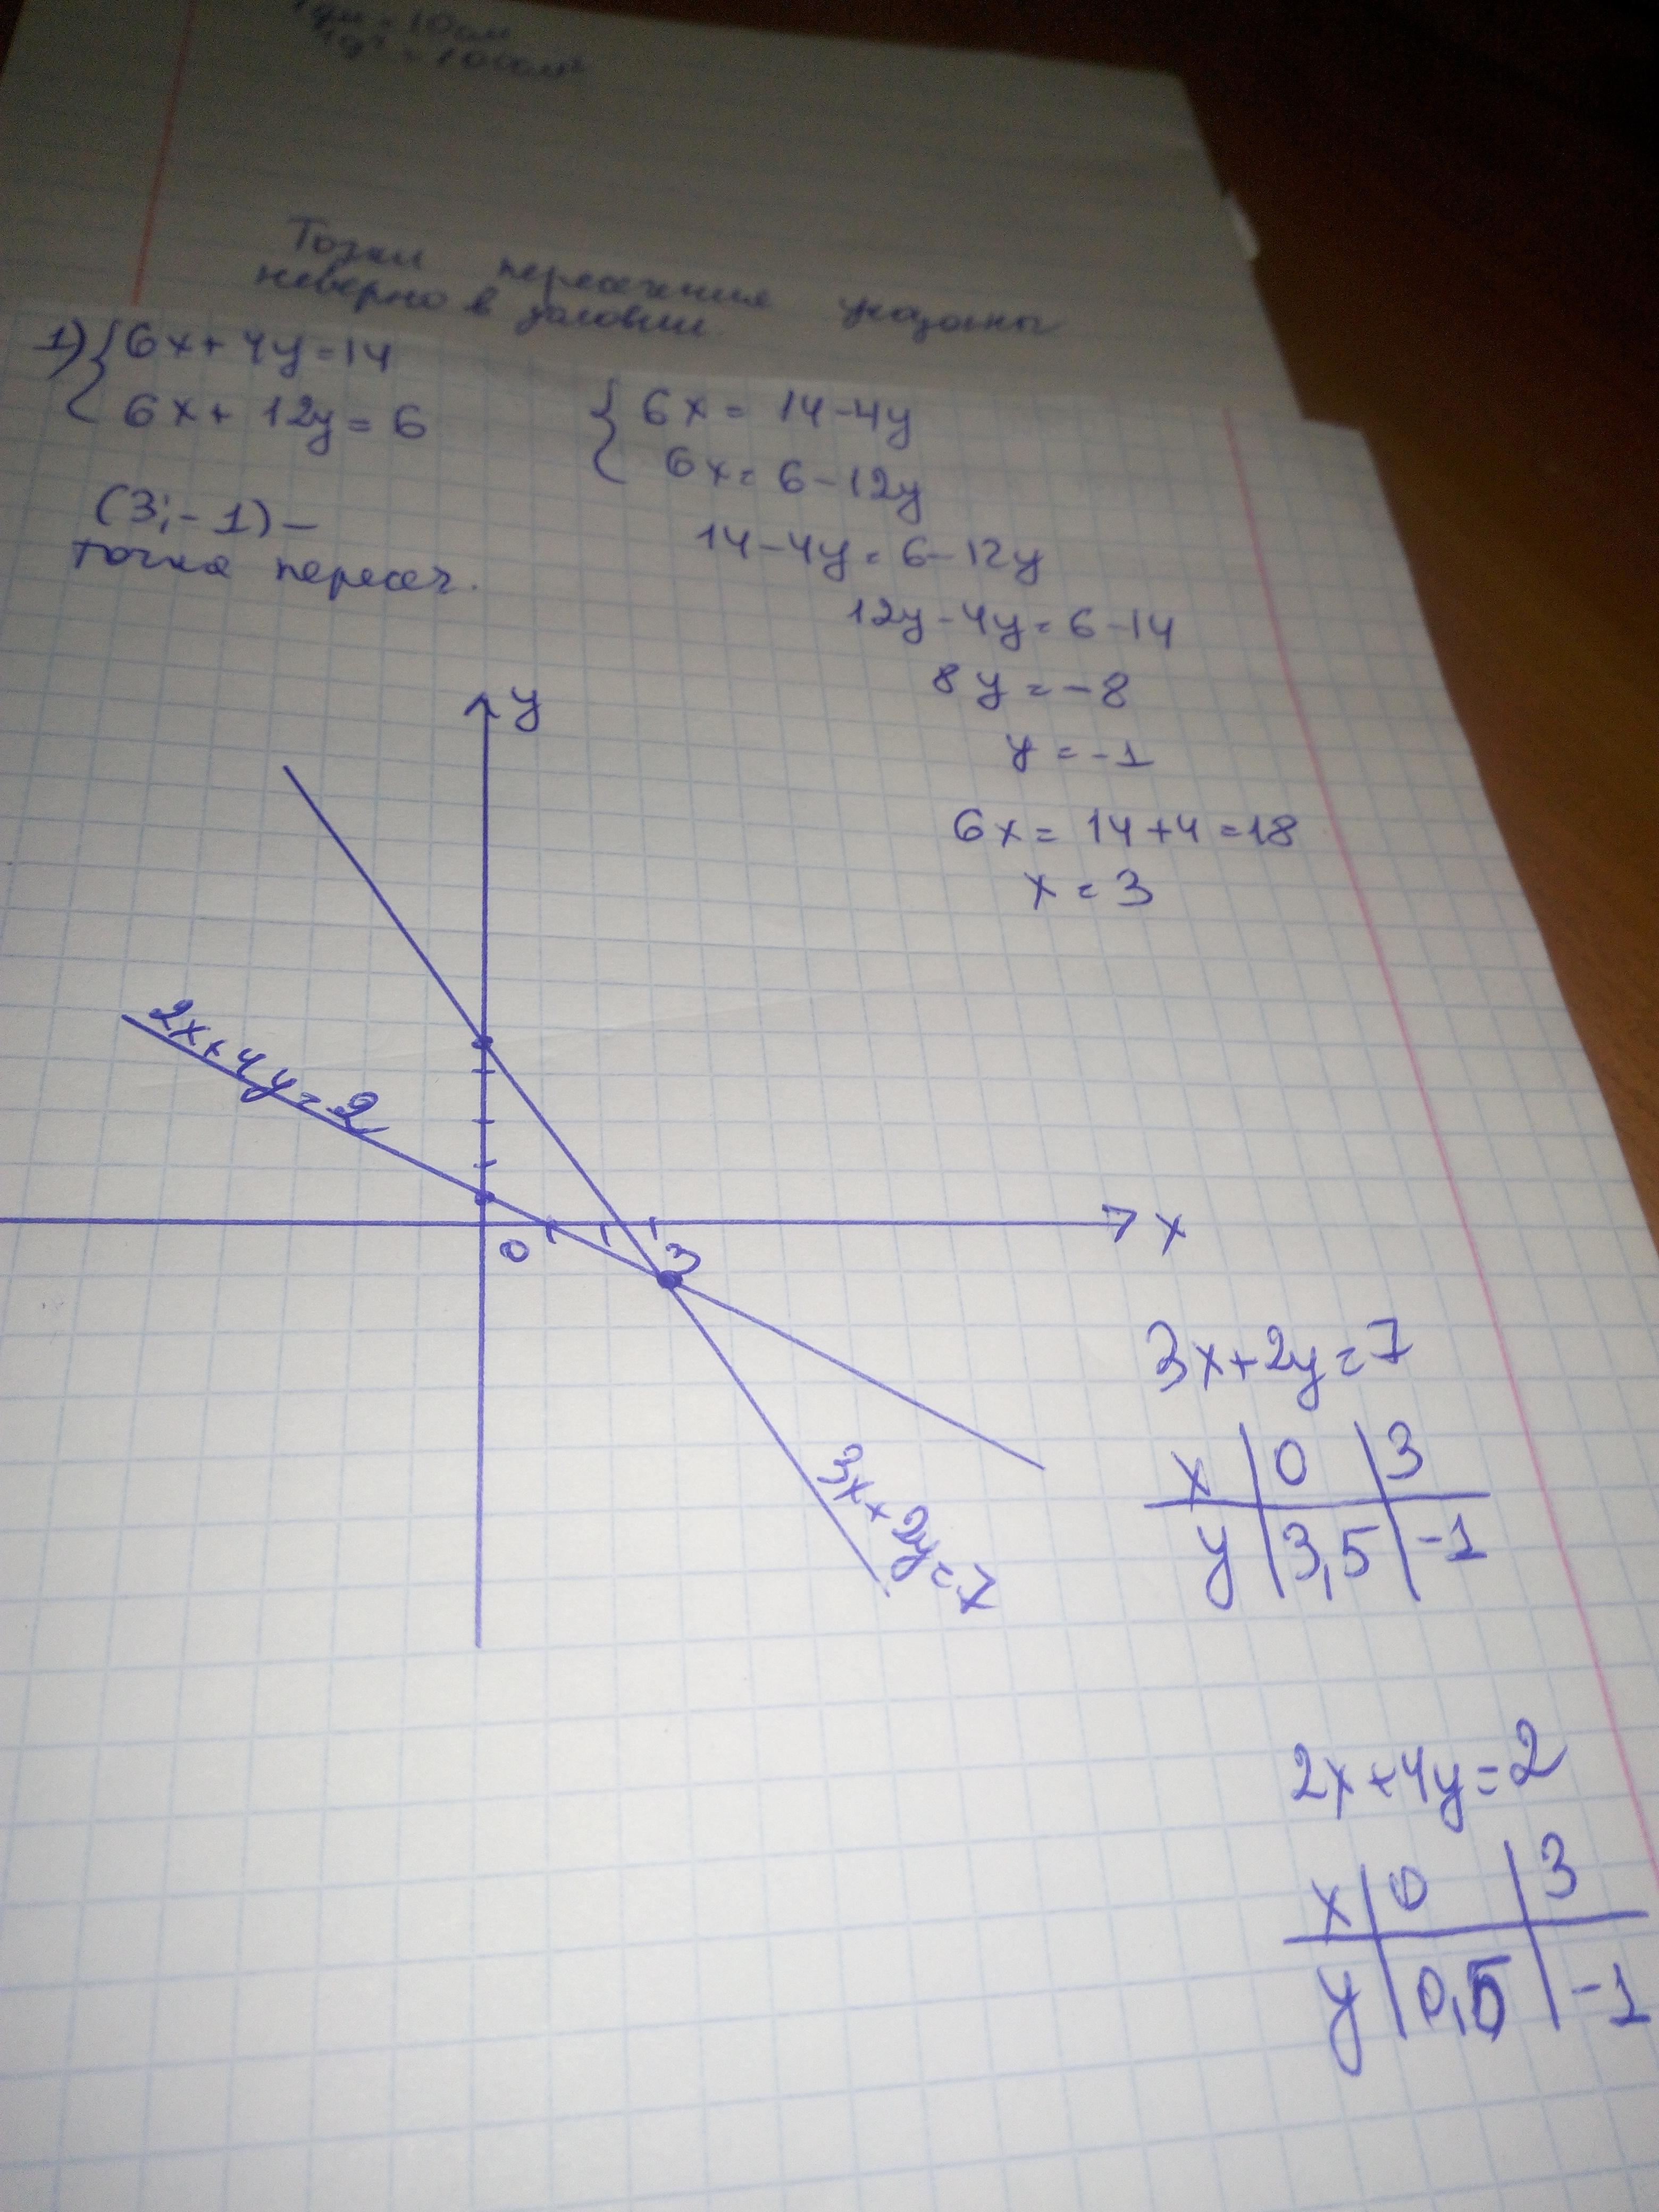 1дм = 10см
1д² = 100см²
Точки пересечения указаны
неверно в условии.
1) { 6x + 4y = 14
6x + 12y = 6
{ 6x = 14 - 4y
6x = 6 - 12y
(3; -1) -
точка пересеч.
14 - 4y = 6 - 12y
12y - 4y = 6 - 14
8y = -8
y = -1
6x = 14 + 4 = 18
x = 3
y
2x + 4y = 2
0
3
x
3x + 2y = 7
3x + 2y = 7
x | 0 | 3
y | 3,5 | -1
2x + 4y = 2
x | 0 | 3
y | 0,5 | -1